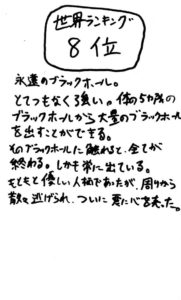 世界ランキング
8位
永遠のブラックホール。
とてつもなく強い。体の5カ所の
ブラックホールから大量のブラックホール
を出すことができる。
そのブラックホールに触れると、全てが
終わる。しかも常に出ている。
もともと優しい人柄であったが、周りから
散々逃げられ、ついに悪に心を売った。